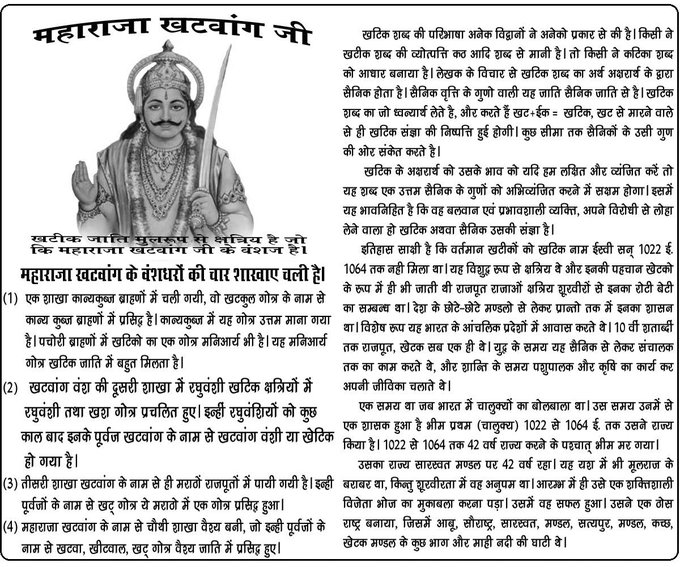 महाराजा खटवांग जी
खटीक जाति मुलरूप से क्षत्रिय है जो
कि महाराजा खटवांग जी के बंशज है।
महाराजा खटवांग के बंशधरौं की चार शाखाए चली है।
(1) एक शाखा कान्यकुब्ज ब्राहणों में चली गयी, वो खटकुल गोत्र के नाम से
कान्य कुब्ज ब्राहणों में प्रसिद्ध है। कान्यकुब्ज में यह गोत्र उत्तम माना गया
है। पचोरी ब्राहणों में खटिको का एक गोत्र मनिआर्य भी है। यह मनिआर्य
गोत्र खटिक जाति में बहुत मिलता है।
(2) खटवांग वंश की दूसरी शाखा में रघुवंशी खटिक क्षत्रियों में
रघुवंशी तथा खश गोत्र प्रचलित हुए। इन्हीं रघुवंशियों को कुछ
काल बाद इनके पूर्वज खटवांग के नाम से खटवांग वंशी या खेटिक
हो गया है।
(3) तीसरी शाखा खटवांग के नाम से ही मराठों राजपूतों में पायी गयी है। इन्ही
पूर्वजों के नाम से खट् गोत्र ये मराठो में एक गोत्र प्रसिद्ध हुआ।
(4) महाराजा खटवांग के नाम से चौथी शाखा वैश्य बनी, जो इन्ही पूर्वजों के
नाम से खटवा, खीटवाल, खट् गोत्र वैश्य जाति में प्रसिद्ध हुए।
खटिक शब्द की परिभाषा अनेक विद्वानों ने अनेको प्रकार से की है। किसी ने
खटीक शब्द की व्योत्पत्ति कठ आदि शब्द से मानी है। तो किसी ने कटिका शब्द
को आधार बनाया है। लेखक के विचार से खटिक शब्द का अर्थ अक्षरार्थ के द्वारा
सैनिक होता है। सैनिक वृत्ति के गुणो वाली यह जाति सैनिक जाति से है। खटिक
शब्द का जो ध्वन्यार्थ लेते है, और करते हैं खट+ईक = खटिक, खट से मारने वाले
से ही खटिक संज्ञा की निष्पत्ति हुई होगी। कुछ सीमा तक सैनिकों के उसी गुण
की ओर संकेत करते है।
खटिक के अक्षरार्थ को उसके भाव को यदि हम लक्षित और व्यंजित करें तो
यह शब्द एक उत्तम सैनिक के गुणों को अभिव्यंजित करने में सक्षम होगा। इसमें
यह भावनिहित है कि वह बलवान एवं प्रभावशाली व्यक्ति, अपने विरोधी से लोहा
लेने वाला हो खटिक अथवा सैनिक उसकी संज्ञा है।
इतिहास साक्षी है कि वर्तमान खटीकों को खटिक नाम ईस्वी सन् 1022 ई.
1064 तक नही मिला था। यह विशुद्व रूप से क्षत्रिय थे और इनकी पहचान खेटको
के रूप में ही भी जाती थी राजपूत राजाओं क्षत्रिय शूरवीरों से इनका रोटी बेटी
का सम्बन्ध था। देश के छोटे-छोटे मण्डलो से लेकर प्रान्तो तक में इनका शासन
था। विशेष रूप यह भारत के आंचलिक प्रदेशों में आवास करते थे। 10 वीं शताब्दी
तक राजपूत, खेटक सब एक ही थे। युद्व के समय यह सैनिक से लेकर संचालक
तक का काम करते थे, और शान्ति के समय पशुपालक और कृषि का कार्य कर
अपनी जीविका चलाते थे।
एक समय था जब भारत में चालुक्यों का बोलबाला था। उस समय उनमें से
एक शासक हुआ है भीम प्रथम (चालुक्य) 1022 से 1064 ई. तक उसने राज्य
किया है। 1022 से 1064 तक 42 वर्ष राज्य करने के पश्चात् भीम मर गया।
उसका राज्य सारस्वत मण्डल पर 42 वर्ष रहा। यह यश में भी मूलराज के
बराबर था, किन्तु शूरवीरता में वह अनुपम था। आरम्भ में ही उसे एक शक्तिशाली
विजेता भोज का मुकाबला करना पड़ा। उसमें वह सफल हुआ। उसने एक ठोस
राष्ट्र बनाया, जिसमें आबू, सौराष्ट्र, सारस्वत, मण्डल, सत्यपुर, मण्डल, कच्छ,
खेटक मण्डल के कुछ भाग और माही नदी की घाटी थे।